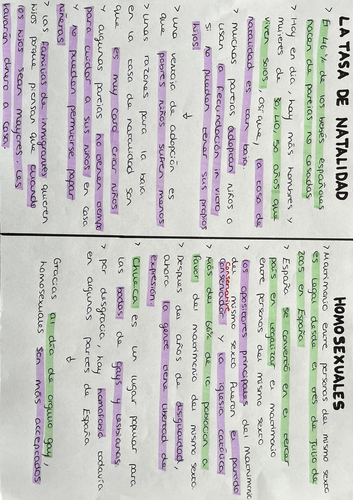 LA TASA DE NATALIDAD
> El 46% de los bebés españoles
nacen de parejas no casadas
> Hoy en día, hay más hombres y
mujeres de 30, 40, 50 años que
viven solos, así que, la tasa de
natalidad es tan baja
> muchas parejas adoptan niños o
usan la fecundación in vitro
si no pueden tener sus propios
hijos
> una ventaja de adopción es
que pobres niños sufren menos
> unas razones para la baja
en la tasa de natalidad son
que es muy caro criar niños
y algunas parejas no tienen tiempo
para cuidar a sus niños en casa
y no pueden permitirse pagar
niñeras
> las familias de inmigrantes quieren
hijos porque piensan que cuando
los hijos sean mayores, les
dinero a casa.
HOMOSEXUALES
> Matrimonio entre personas del mismo sexo
es legal desde el tres de julio de
2005 en España
> España se convertió en el tercer
país en legalizar el matrimonio
entre personas del mismo sexo
> los opositores principales del matrimonio
del mismo sexo fueron el partido
conservador y la iglesia católica
> Más del 66% de la población a
favor del matrimonio del mismo sexo
> Después de años de desigualdad,
ahora la gente tiene libertad de
expresión
> Chueca es un lugar popular para
las bodas de gays y lesbianas
> por desgracia, hay homofobia todavía
en algunas partes de España
Gracias al día de orgullo gay,
homosexuales son más aceptados